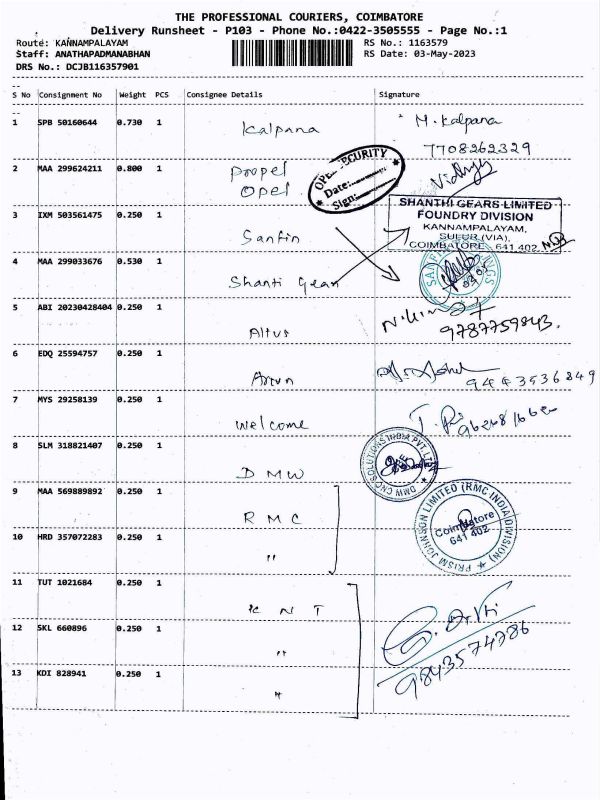 THE PROFESSIONAL COURIERS, COIMBATORE
Delivery Runsheet - P103 - Phone No.:0422-3505555 - Page No.:1
Route: KANNAMPALAYAM
RS No.: 1163579
Staff: ANATHAPADMANABHAN
RS Date: 03-May-2023
DRS No.: DCJB116357901
S No Consignment No Weight PCS Consignee Details Signature
1 SPB 50160644 0.730 1 Kalpana M. Kalpana
7708262329
2 MAA 299624211 0.800 1 Propel
Opel
OPEL SECURITY
Date:
Sign:
3 IXM 503561475 0.250 1 Sanfin
SHANTHI GEARS LIMITED
FOUNDRY DIVISION
KANNAMPALAYAM,
SULUR (VIA),
COIMBATORE - 641 402
4 MAA 299033676 0.530 1 Shanti Gears
5 ABI 20230428404 0.250 1 Altus
9787759843
6 EDQ 25594757 0.250 1 Arun
9443536849
7 MYS 29258139 0.250 1 Welcome
8 SLM 318821407 0.250 1 DMW
DMW CNC SOLUTIONS INDIA PVT.LTD
9 MAA 569889892 0.250 1 RMC
PRISM JOHNSON LIMITED (RMC INDIA DIVISION)
Coimbatore
641 402
10 HRD 357072283 0.250 1 "
11 TUT 1021684 0.250 1 KNT
12 SKL 660896 0.250 1 "
9843574786
13 KDI 828941 0.250 1 "